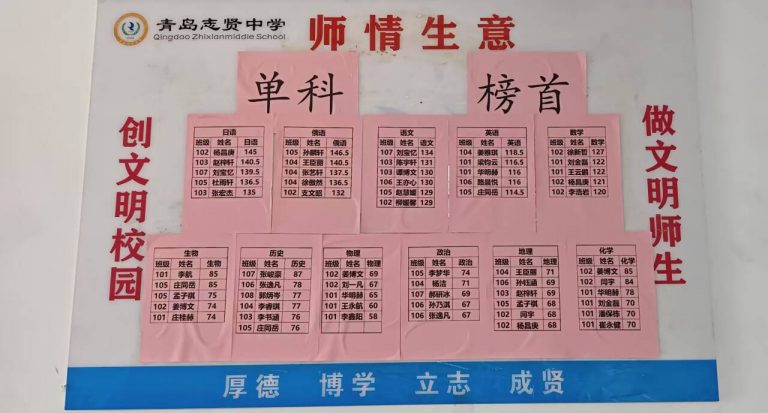 青岛志贤中学
Qingdao Zhixianmiddle School
师情生意
创文明校园
做文明师生
单科
榜首
日语
班级 姓名 日语
102 杨昌庚 145
103 赵梓轩 140.5
107 刘宝忆 139.5
105 杜雨轩 136.5
103 张宏杰 135
俄语
班级 姓名 俄语
105 孙麒轩 146.5
104 王臣丽 140.5
104 张艺轩 137.5
104 徐傲然 136.5
102 支文韶 132
语文
班级 姓名 语文
107 刘宝忆 134
103 陈宇轩 131
103 谭博文 130
106 王亦心 130
105 赵慧媛 129
102 柳媛馨 129
英语
班级 姓名 英语
104 姜雅琪 118.5
101 梁钧云 116.5
101 华明赫 116
106 路晨悦 116
105 庄同岳 114.5
数学
班级 姓名 数学
102 徐新哲 127
101 刘金磊 122
101 王云鹏 122
102 杨昌庚 121
102 李浩岩 120
生物
班级 姓名 生物
101 李航 85
105 庄同岳 85
105 孟子祺 75
102 姜博文 74
101 庄桂赫 74
历史
班级 姓名 历史
107 张峻豪 87
106 张逸凡 78
108 郭炳岑 77
104 李睿琪 77
103 李书涵 76
105 庄同岳 76
物理
班级 姓名 物理
102 姜博文 69
102 刘一凡 67
101 华明赫 65
101 王永航 60
101 李鑫阳 58
政治
班级 姓名 政治
105 李梦华 74
104 杨洁 71
107 郝研冰 69
106 孙乃淇 67
106 张逸凡 67
地理
班级 姓名 地理
104 王臣丽 71
106 孙钰涵 69
103 赵梓轩 69
105 孟子祺 68
102 闫宇 68
102 杨昌庚 68
化学
班级 姓名 化学
102 姜博文 85
102 闫宇 84
101 华明赫 78
101 刘金磊 70
101 潘保栋 70
101 崔永健 70
厚德 博学 立志 成贤